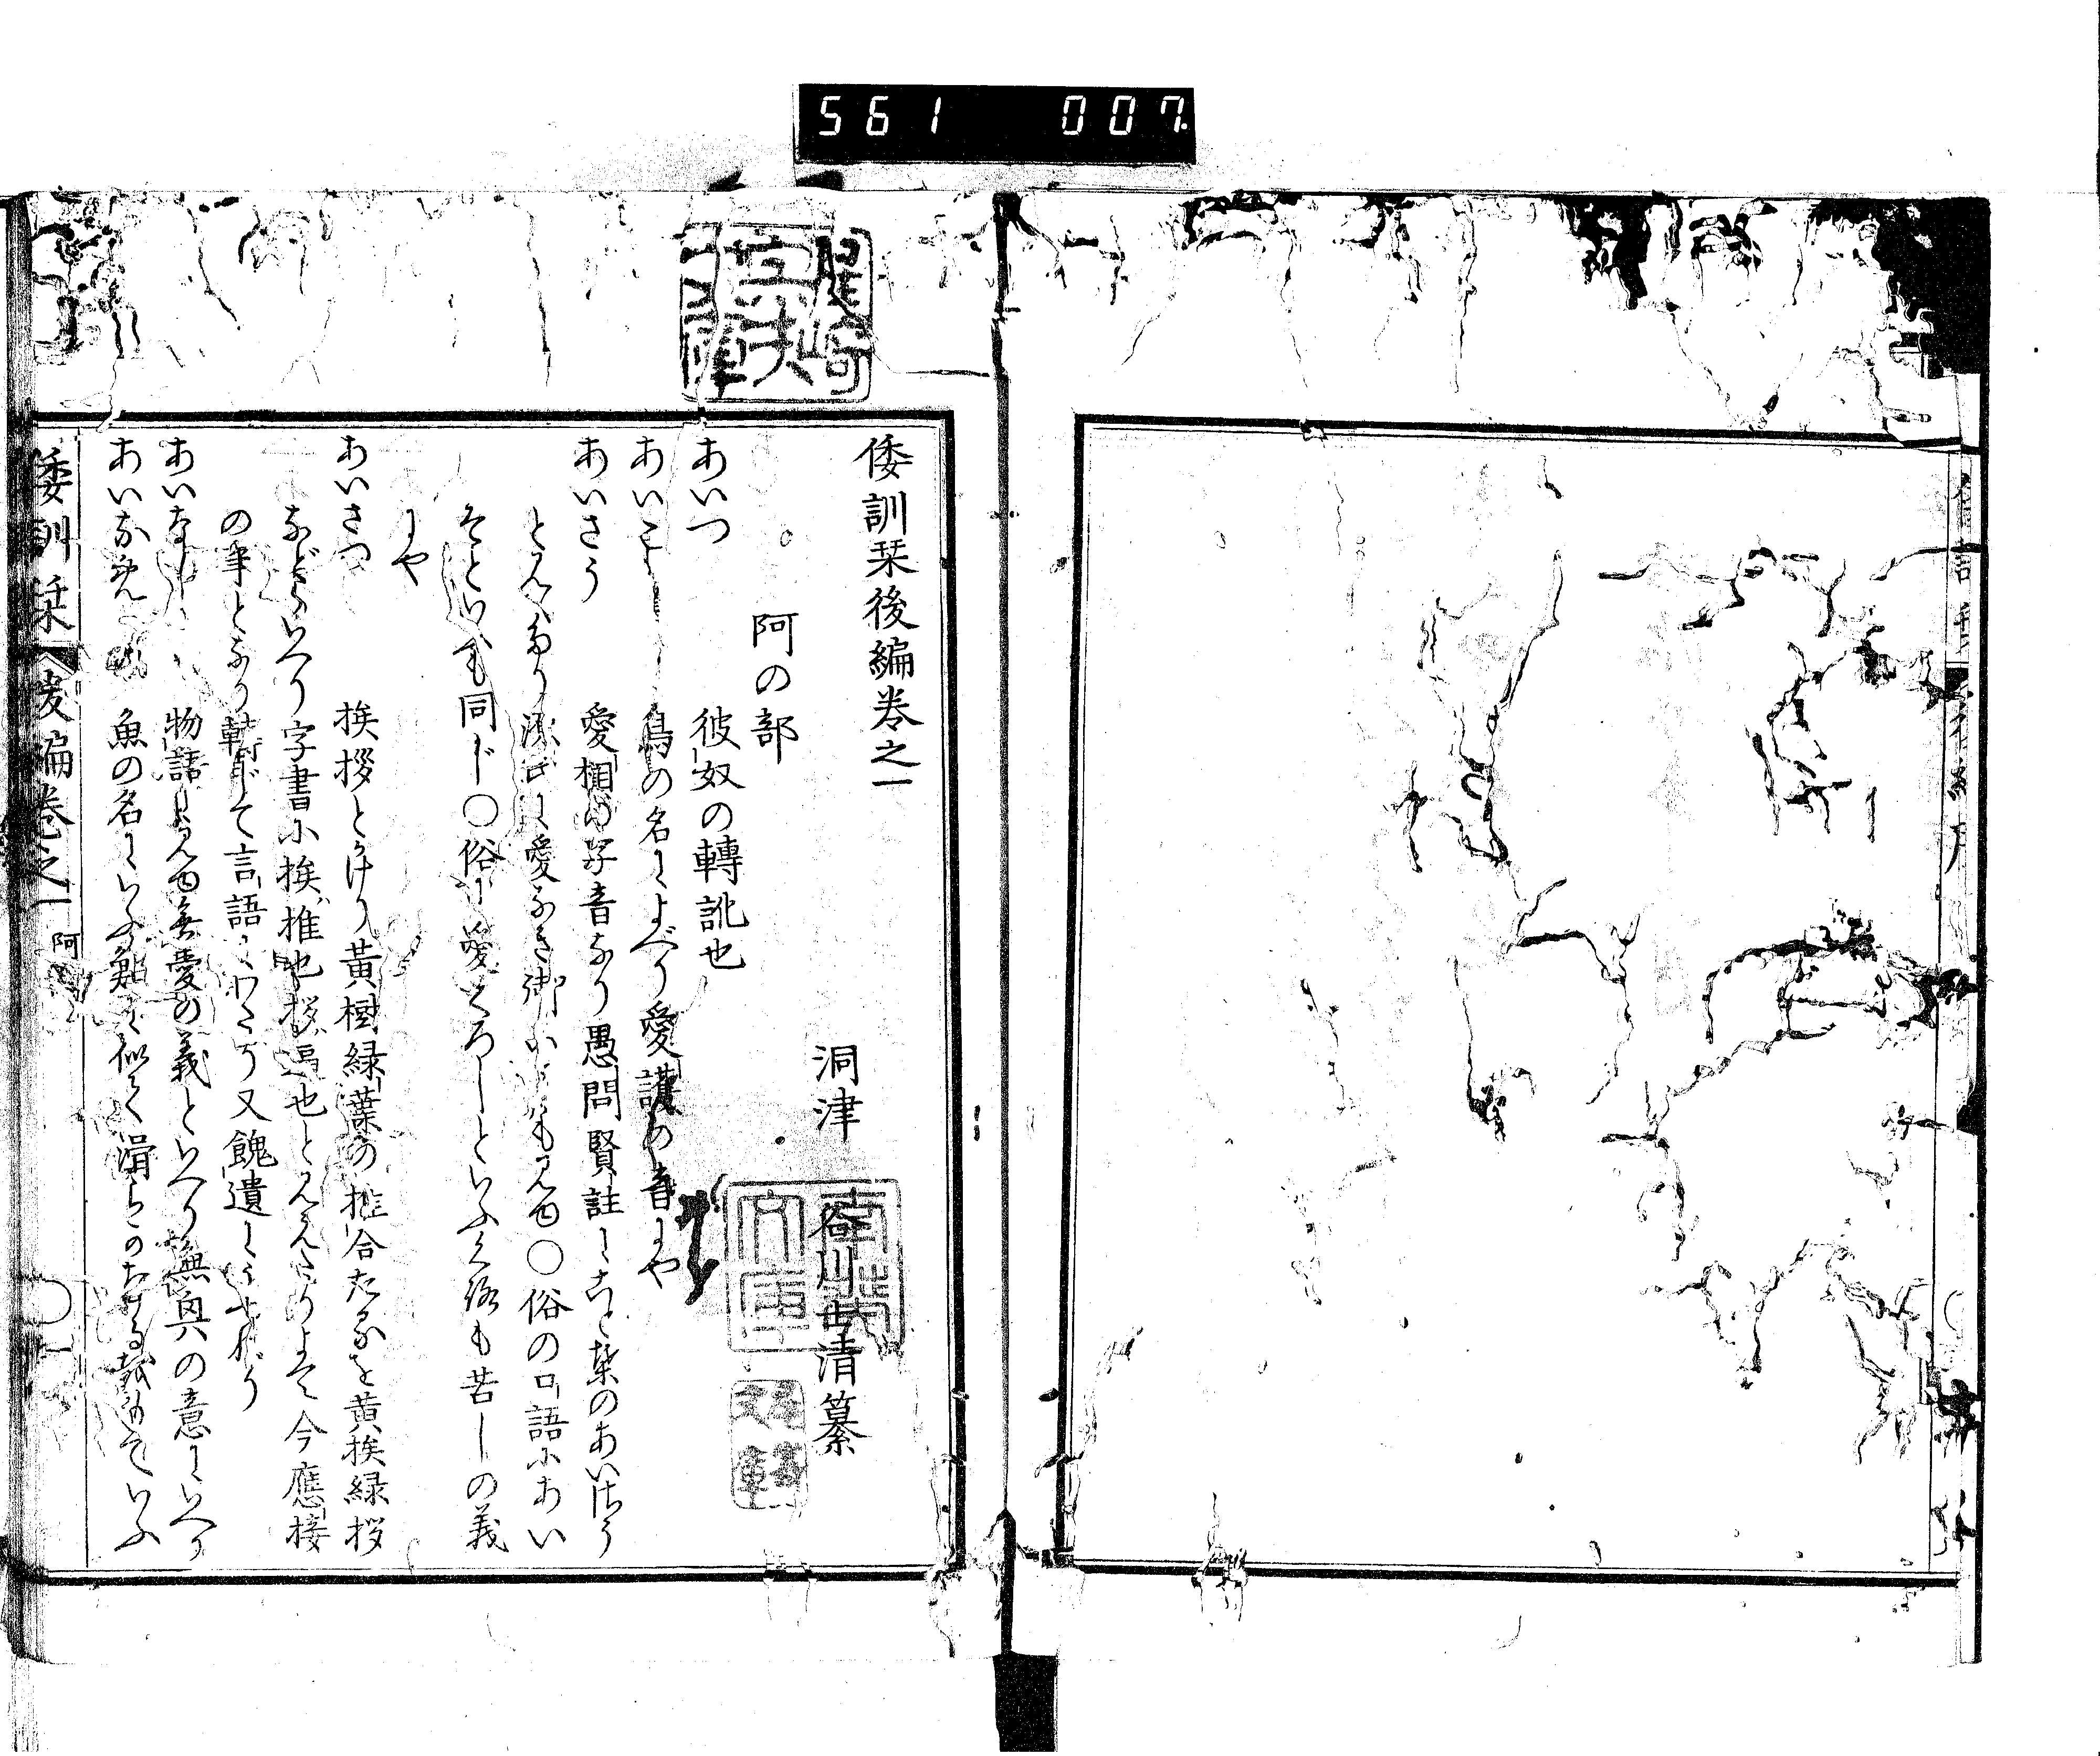 561 007
倭訓栞後編巻之一
洞津 谷川士清纂
阿の部
あいつ 彼奴の轉訛也
あいご 鳥の名によべり愛護の音にや
あいさう 愛相の字音なり愚問賢註にあと輦のあいさう
とみへたり 愛なき 御 にも見ゆ〇俗の口語にあい
そといふも同じ〇俗に愛くろしといふくろも苦しの義
にや
あいさつ 挨拶とかけり黄樹緑葉の推合たるを黄挨緑拶
などといへり字書に挨推也拶逼也とみえたりよて今應接
の事となり轉じて言語にわたり又餽遺にうつれり
あいなし 物語に見ゆ無愛の義といへり無興の意にいへり
あいなめ 魚の名にいふ鮎に似て滑らかなる 故 ていふ
倭訓栞 後編巻之一 阿